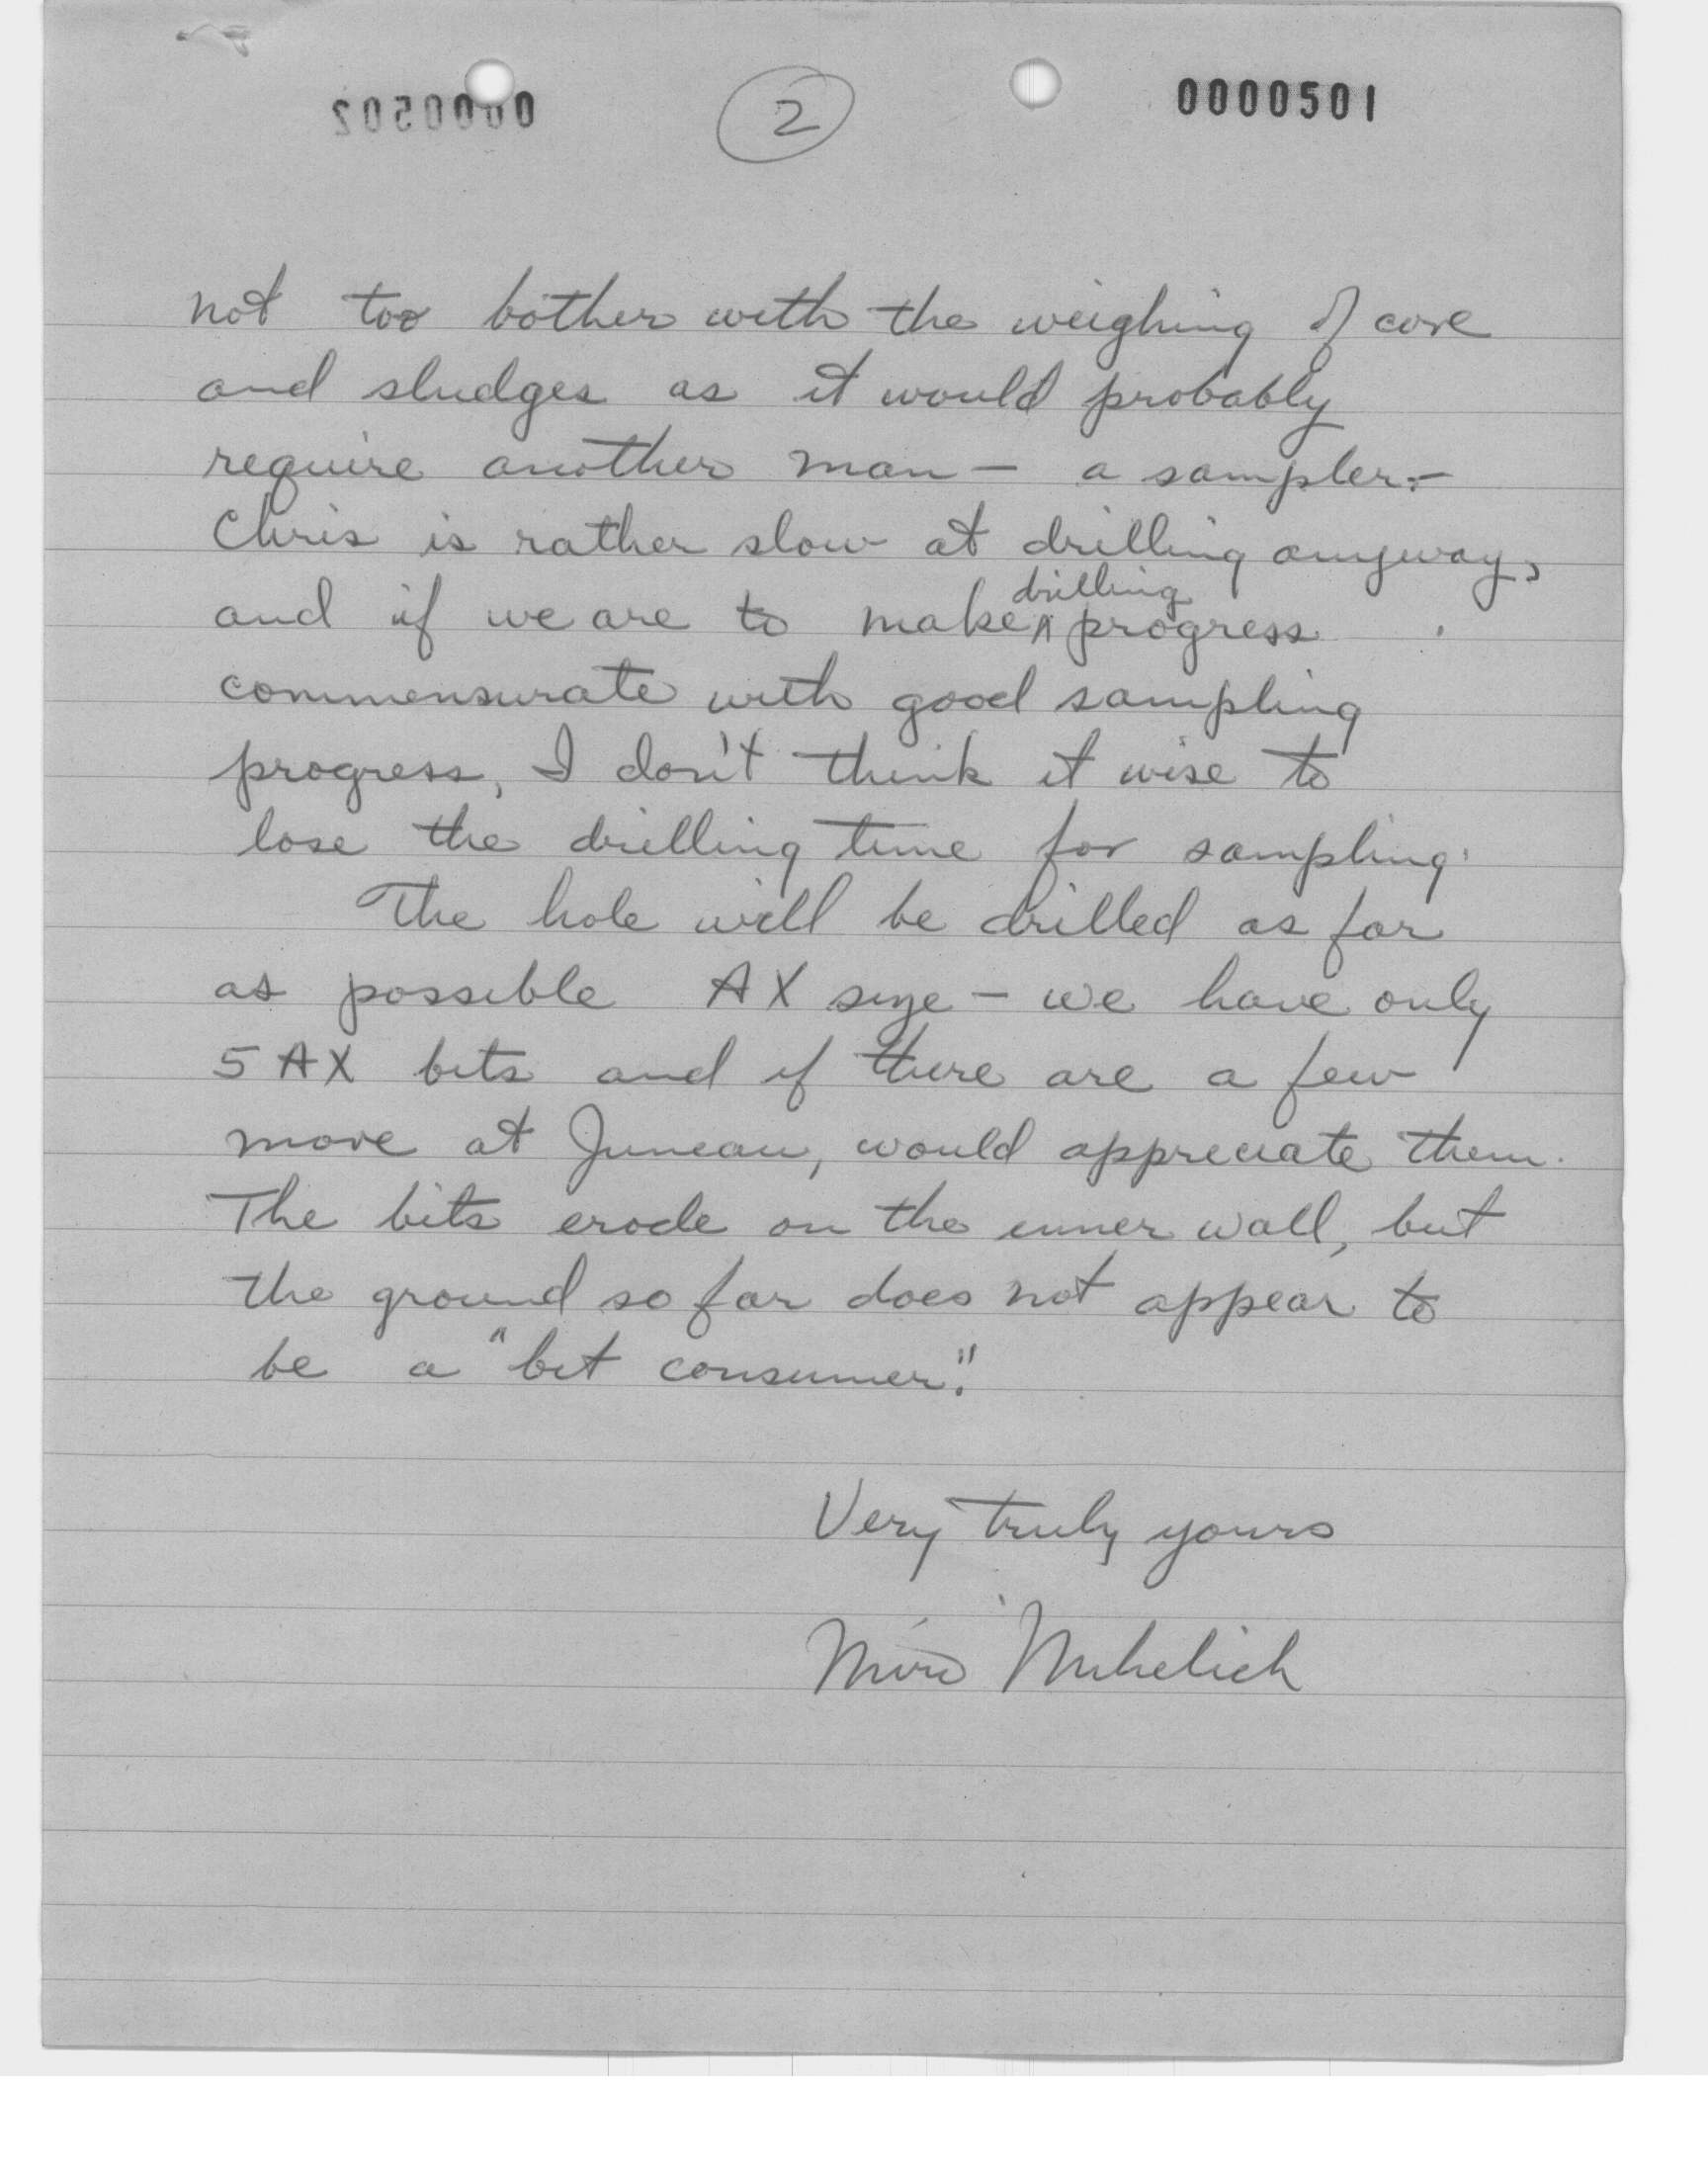 0000502
2
0000501
not too bother with the weighing of core
and sludges as it would probably
require another man — a sampler. —
Chris is rather slow at drilling anyway,
and if we are to make ^ drilling progress
commensurate with good sampling
progress, I don't think it wise to
lose the drilling time for sampling.
The hole will be drilled as far
as possible AX size — we have only
5 AX bits and if there are a few
more at Juneau, would appreciate them.
The bits erode on the inner wall, but
the ground so far does not appear to
be a "bit consumer."
Very truly yours
Miro Mihelich